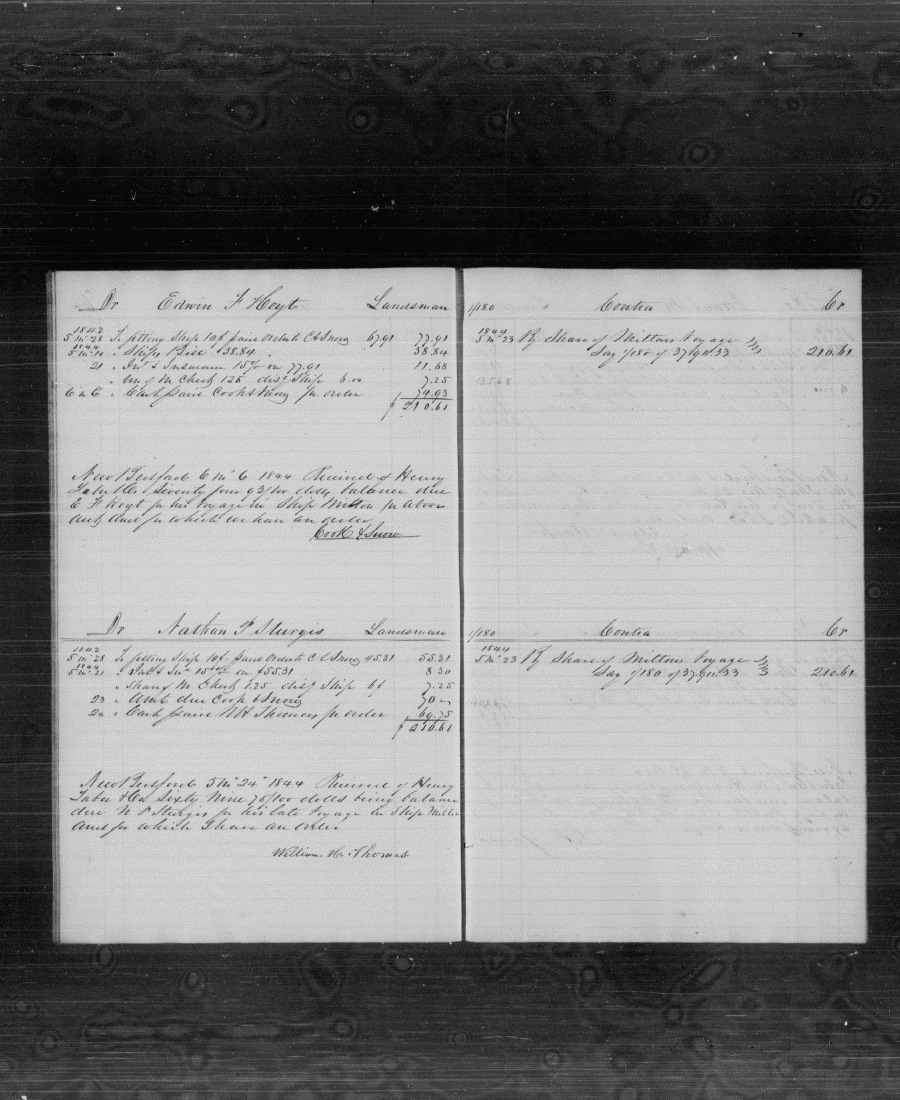 Dr Edwin F Hoyt Landsman
1842
5 mo 28 To fitting Ship 10$ paid Orders C & Snow 67.91 77.91
1844
5 mo 10 " Ships Bill 38.84 38.84
21 " Int & Insurance 15 % on 77.91 11.68
" M Chest 125 disg Ship 6.00 7.25
6 mo 6 " Cash paid Cook & Snow pr order 74.93
$ 210.61
New Bedford 6 mo 6 1844 Received of Henry
Taber & Co Seventy four 93/100 dolls balance due
E F Hoyt for his Voyage in Ship Milton pr above
and for which we have an order
Cook & Snow
1/180 Contra Cr
1844
5 mo 23 By Share of Miltons Voyage
Say 1/180 of 37,911.33 210.61
Dr Nathan P Sturgis Landsman
1842
5 mo 28 To fitting Ship 10$ paid Orders C & Snow 45.31 55.31
1844
5 mo 21 " Int & Ins 15 % on $55.31 8.30
" Share M Chest 1.25 disg Ship 6$ 7.25
23 " Amt due Cook & Snow 70
24 " Cash paid W H Thomas pr order 69.75
$ 210.61
New Bedford 5 mo 24 1844 Received of Henry
Taber & Co Sixty Nine 75/100 dolls being balance
due N P Sturgis for his late Voyage in Ship Milton
and for which I have an order
William H. Thomas
1/180 Contra Cr
1844
5 mo 23 By Share of Miltons Voyage
Say 1/180 of 37,911.33 210.61